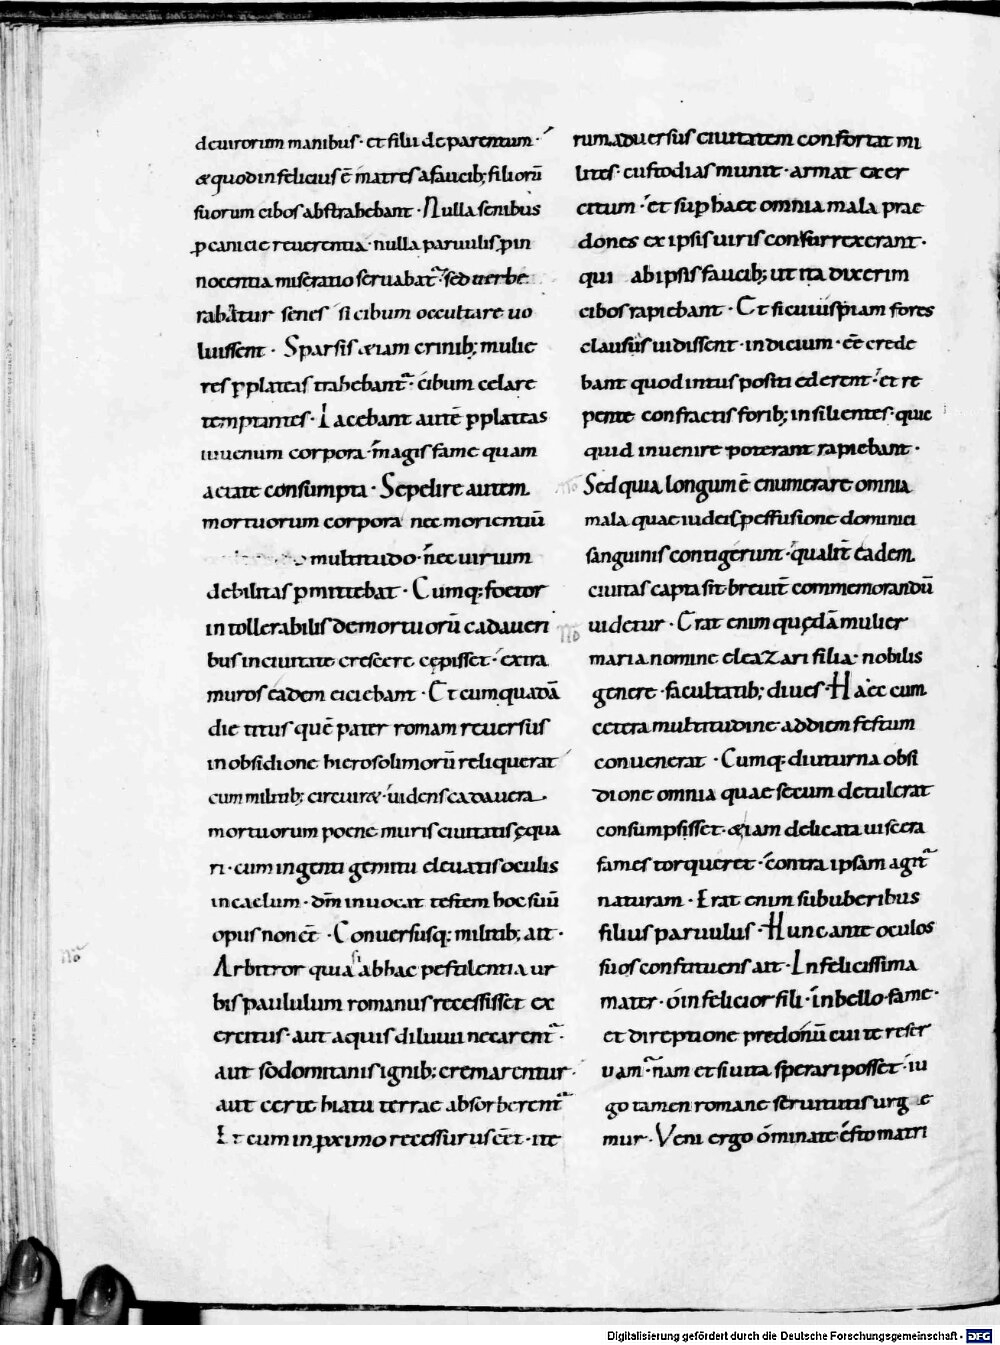 deuirorum manibus · et filii de parentum ·
&quod infelicius ē matres afaucib; filiorū
suorum cibos abstrahebant · Nulla senibus
ꝓ canicie reuerentia · nulla paruulis ꝓ in
nocentia miseratio seruabat᷑ · sed uerbe
rabātur senes si cibum occultare uo
luissent · Sparsis &iam crinib; mulie
res ꝑ plateas trahebant᷑ · cibum celare
temptantes · Iacebant autē ꝑ plateas
iuuenum corpora · magis fame quam
aetate consumpta · Sepelire autem
mortuorum corpora nec morientiū
multitudo · nec uirium
debilitas ꝑmittebat · Cumq; foetor
intollerabilis demortuorū cadaueri
bus inciuitate crescere cępisset · extra
muros eadem eiciebant · Et cum quadā
die titus quē pater romam reuersus
in obsidione hierosolimorū reliquerat
cum militib; circuir& · uidens cadauera
mortuorum poene muris ciuitatis ęqua
ri · cum ingenti gemitu eleuatis oculis
in caelum · dm̄ inuocat testem hoc suū
opus non eēt · Conuersusq; militib; ait ·
Arbitror quia si ab hac pestilentia ur
bis paululum romanus recessisset ex
ercitus · aut aquis diluuii necarent᷑ ·
aut sodomitanis ignib; cremarentur ·
aut certe hiatu terrae absorberent᷑
Et cum in ꝓximo recessurus eēt · ite
rum aduersus ciuitatem confortat mi
lites · custodias munit · armat exer
citum · et suꝑ haec omnia mala prae
dones ex ipsis uiris consurrexerant ·
qui ab ipsis faucib; ut ita dixerim
cibos rapiebant · Et si cuiuspiam fores
clausus uidissent · indicium · eē crede
bant quod intus positi ederent · et re
pente confractis forib; insilientes · quic
quid inuenire poterant rapiebant ·
Sed quia longum ē enumerare omnia
mala quae iudeis ꝑ effusionem dominici
sanguinis contigerunt · qualit̄ eadem
ciuitas capta sit · breuit̄ commemorandū
uidetur · Erat enim quędā mulier
maria nomine eleazari filia · nobilis
genere · facultatib; diues · Haec cum
cetera multitudine ad diem festum
conuenerat · Cumq; diuturna obsi
dione omnia quae secum detulerat
consumpsisset · &iam delicata uiscera
fames torqueret · contra ipsam agit᷑
naturam · Erat enim sub uberibus
filius paruulus · Hunc ante oculos
suos constituens ait · Infelicissima
mater · o infelicior fili · in bello · fame ·
et direptione predonū cui te reser
uam᷑ · nam et si uita sperari posset · iu
go tamen romane seruitutis urge
mur · Veni ergo o mi nate esto matri